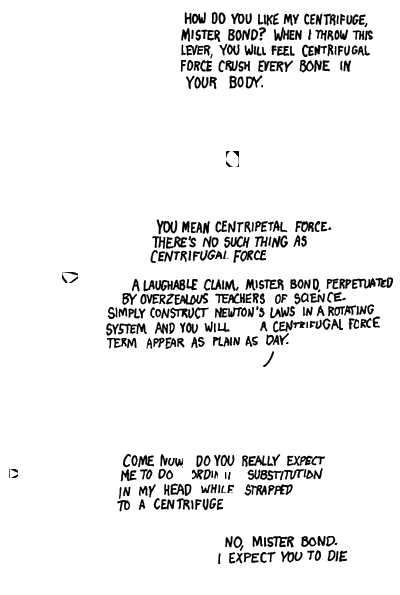 HOW DO YOU LIKE MY CENTRIFUGE,
MISTER BOND? WHEN I THROW THIS
LEVER, YOU WILL FEEL CENTRIFUGAL
FORCE CRUSH EVERY BONE IN
YOUR BODY.
YOU MEAN CENTRIPETAL FORCE.
THERE'S NO SUCH THING AS
CENTRIFUGAL FORCE
A LAUGHABLE CLAIM, MISTER BOND, PERPETUATED
BY OVERZEALOUS TEACHERS OF SCIENCE.
SIMPLY CONSTRUCT NEWTON'S LAWS IN A ROTATING
SYSTEM AND YOU WILL A CENTRIFUGAL FORCE
TERM APPEAR AS PLAIN AS DAY.
COME NOW DO YOU REALLY EXPECT
ME TO DO SUBSTITUTION
IN MY HEAD WHILE STRAPPED
TO A CENTRIFUGE
NO, MISTER BOND.
I EXPECT YOU TO DIE